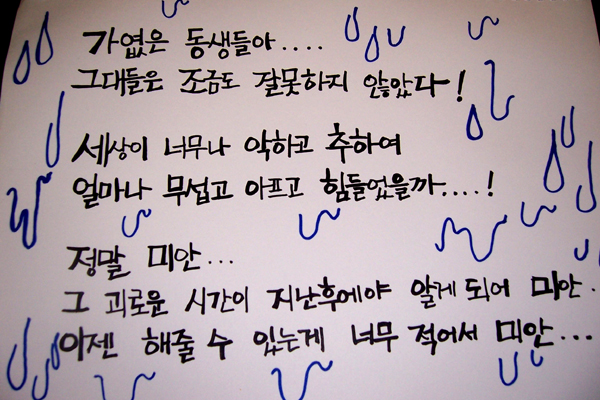 가엾은 동생들아....
그대들은 조금도 잘못하지 않았다!
세상이 너무나 악하고 추하여
얼마나 무섭고 아프고 힘들었을까....!
정말 미안...
그 괴로운 시간이 지난후에야 알게 되어 미안.
이젠 해줄 수 있는게 너무 적어서 미안...